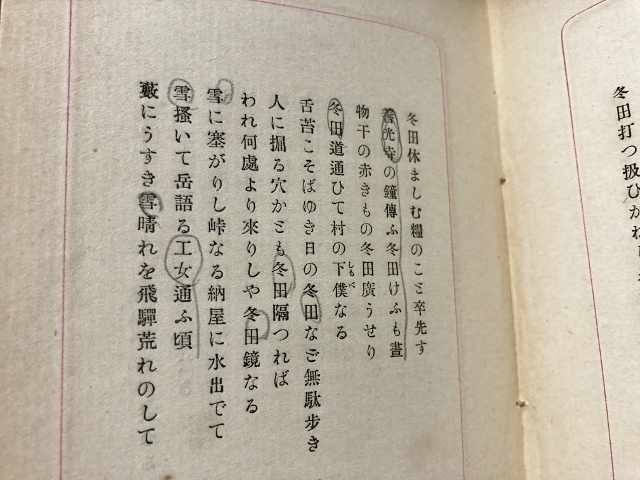 冬田打つ扱ひかね
冬田休ましむ糧のこと卒先す
善光寺の鐘傳ふ冬田けふも晝
物干の赤きもの冬田廣うせり
冬田道通ひて村の下僕なる
しもべ
舌苦こそばゆき日の冬田なご無駄步き
人に掘る穴かとも冬田隔つれば
われ何處より來りしや冬田鏡なる
雪に塞がりし峠なる納屋に水出でて
雪搔いて岳語る工女通ふ頃
藪にうすき雪晴れを飛驒荒れのして